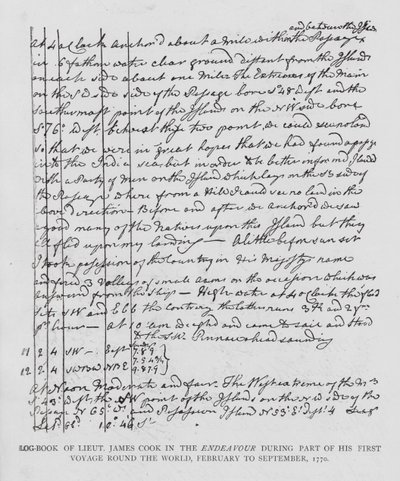 and between the Islds
At 4 oClock Anchor'd about a Mile within the Passage
in 6 fathom water clear ground distant from the Islds
on each side about one Mile The Extremes of the Main
on the SE side of the Passage bore S 48° West and the
southermost point of the Islands on the NW side bore
S 76° West between these two points we could see no land
so that we were in great hopes that we had found a passage
into the India seas but in order to be better inform'd I land'd
with a Party of Men on the Island which lays on the SE side of
the Passage where from a Hill I could see no land in the
above direction Before and after we anchor'd we saw
a good many of the Natives upon this Island but they
all fled upon my landing — A little before sun set
I took possession of the Country in His Majestys name
and fired 3 Volleys of small arms on the occasion which was
answerd from the Ship — High water at 4 oClock the flood
sets SW and Ebb the contrary the latter runs
hour — at 10 am weighed and came to sail and stood
to the SW Pinnace ahead sounding
11 2 4 SW
12 2 4
At Noon Moderate and fair. The West extreme of the
S 43° West the SW point of the Islands on the NW side of the
Passage N 65° W and Possession Island N 53° E Distt 4 Leags
Lat. 10°.46' S.
LOG-BOOK OF LIEUT. JAMES COOK IN THE ENDEAVOUR DURING PART OF HIS FIRST
VOYAGE ROUND THE WORLD, FEBRUARY TO SEPTEMBER, 1770.